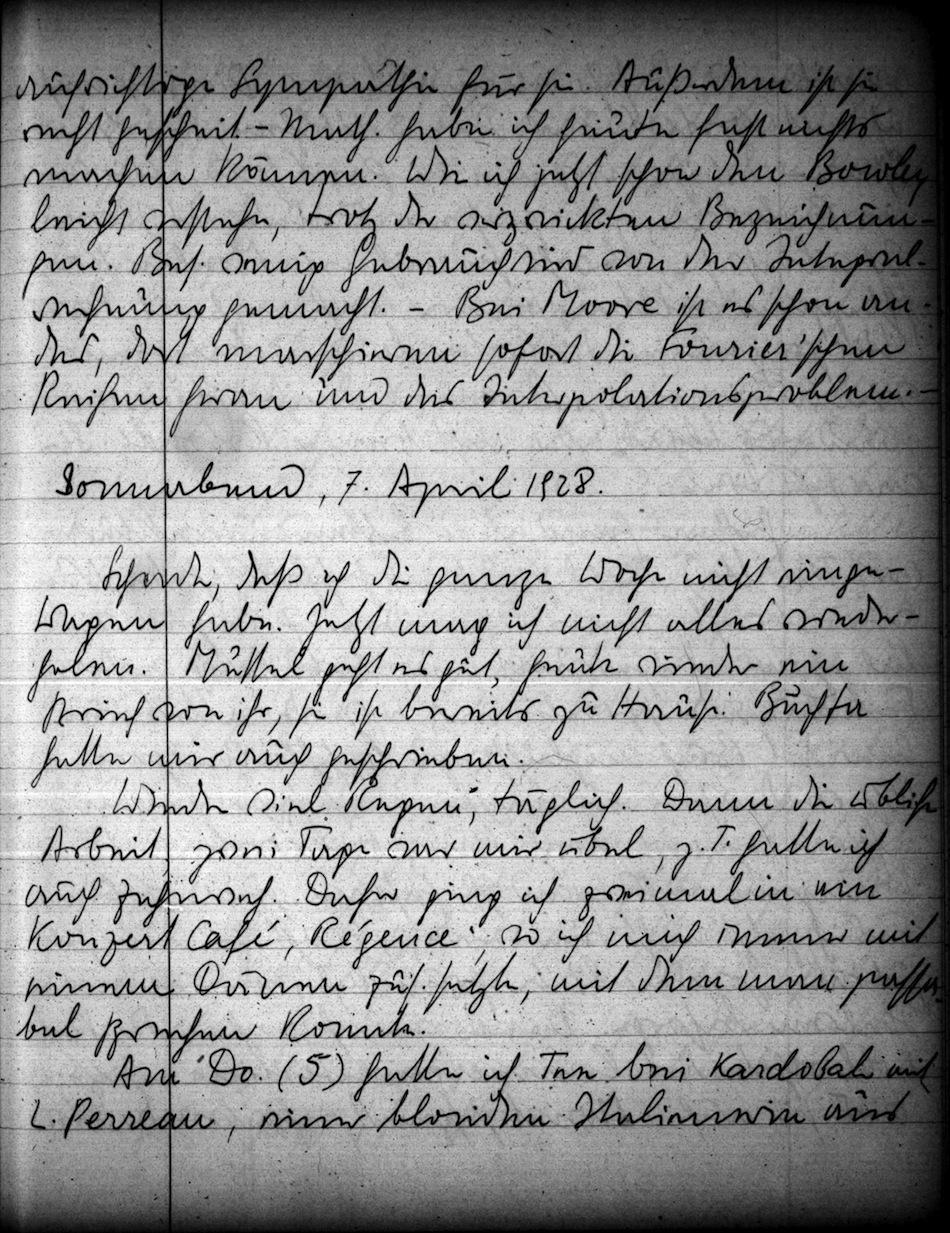 aufrichtige Sympathie für sie. Außerdem ist sie
recht gescheit. – Math. habe ich heute fast nichts
machen können. Wie ich jetzt schon den Bowley
leicht verstehe, trotz der verzwickten Bezeichnun-
gen. Bes. wenig Gebrauch wird von der Integral-
rechnung gemacht. – Bei Moore ist es schon an-
ders, dort marschieren sofort die Fourier'schen
Reihen heran und das Interpolationsproblem. –
Sonnabend, 7. April 1928.
Schade, daß ich die ganze Woche nicht einge-
tragen habe. Jetzt mag ich nicht alles wieder-
holen. geht es gut, heute wieder ein
Brief von ihr, sie ist bereits zu Hause.
hatte mir auch geschrieben.
Wieder viel Regen, täglich. Dann die übliche
Arbeit, zwei Tage war mir übel, z. T. hatte ich
auch Zahnweh. Daher ging ich zweimal in ein
Konzert Café, „Régence", wo ich mich immer mit
einem Dänen zus. setzte, mit dem man passa-
bel sprechen konnte.
Am Do. (5) hatte ich Tee bei mit
L. Perreau, einer blonden Italienerin aus